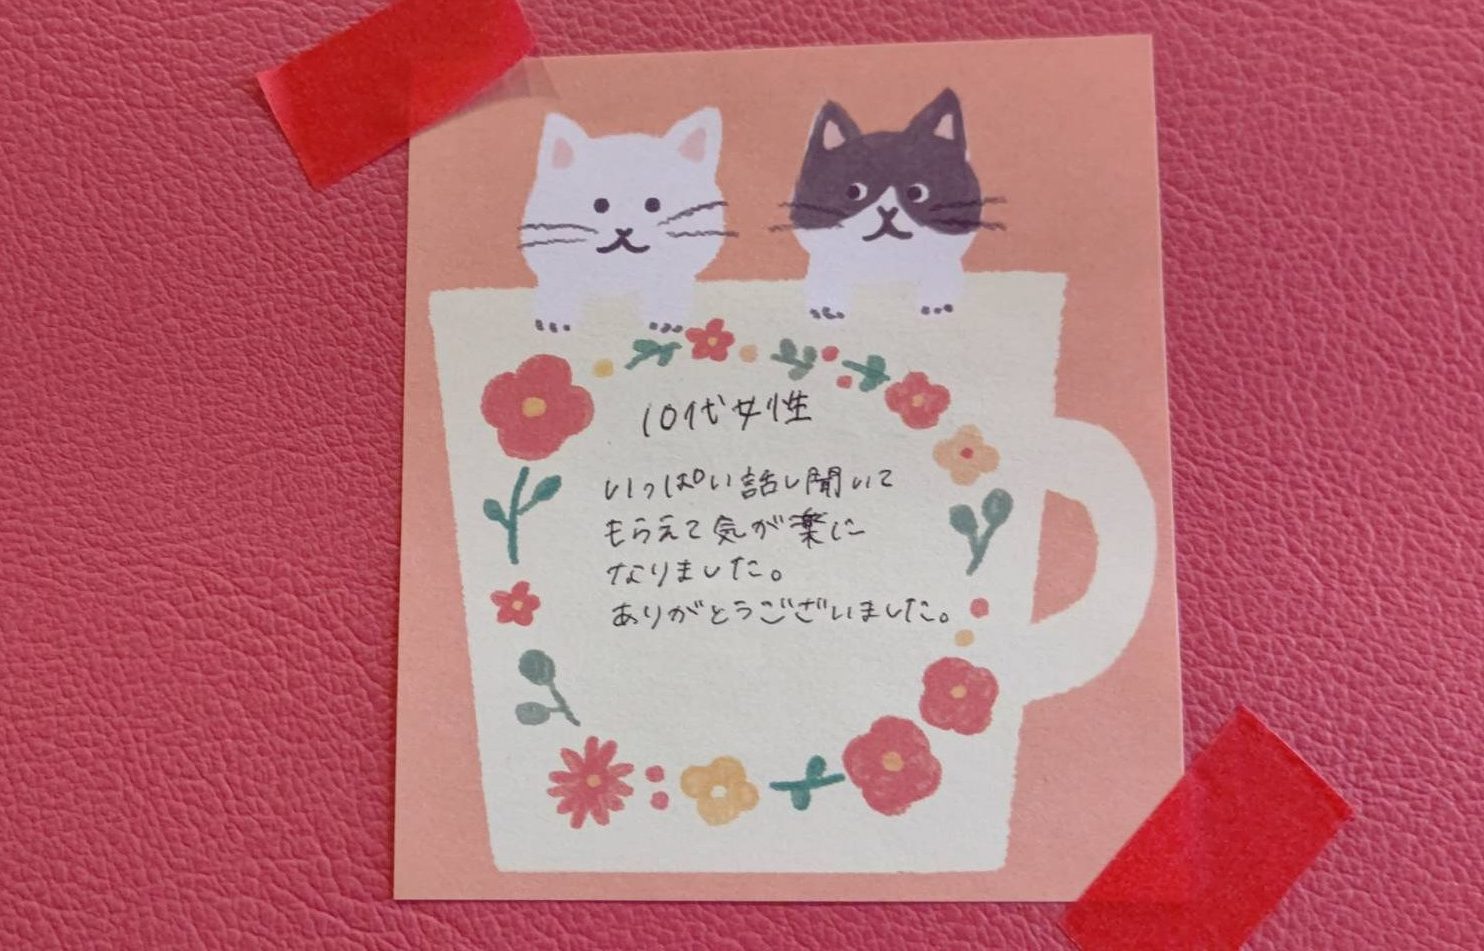 10代女性
いっぱい話し聞いて
もらえて気が楽に
なりました。
ありがとうございました。